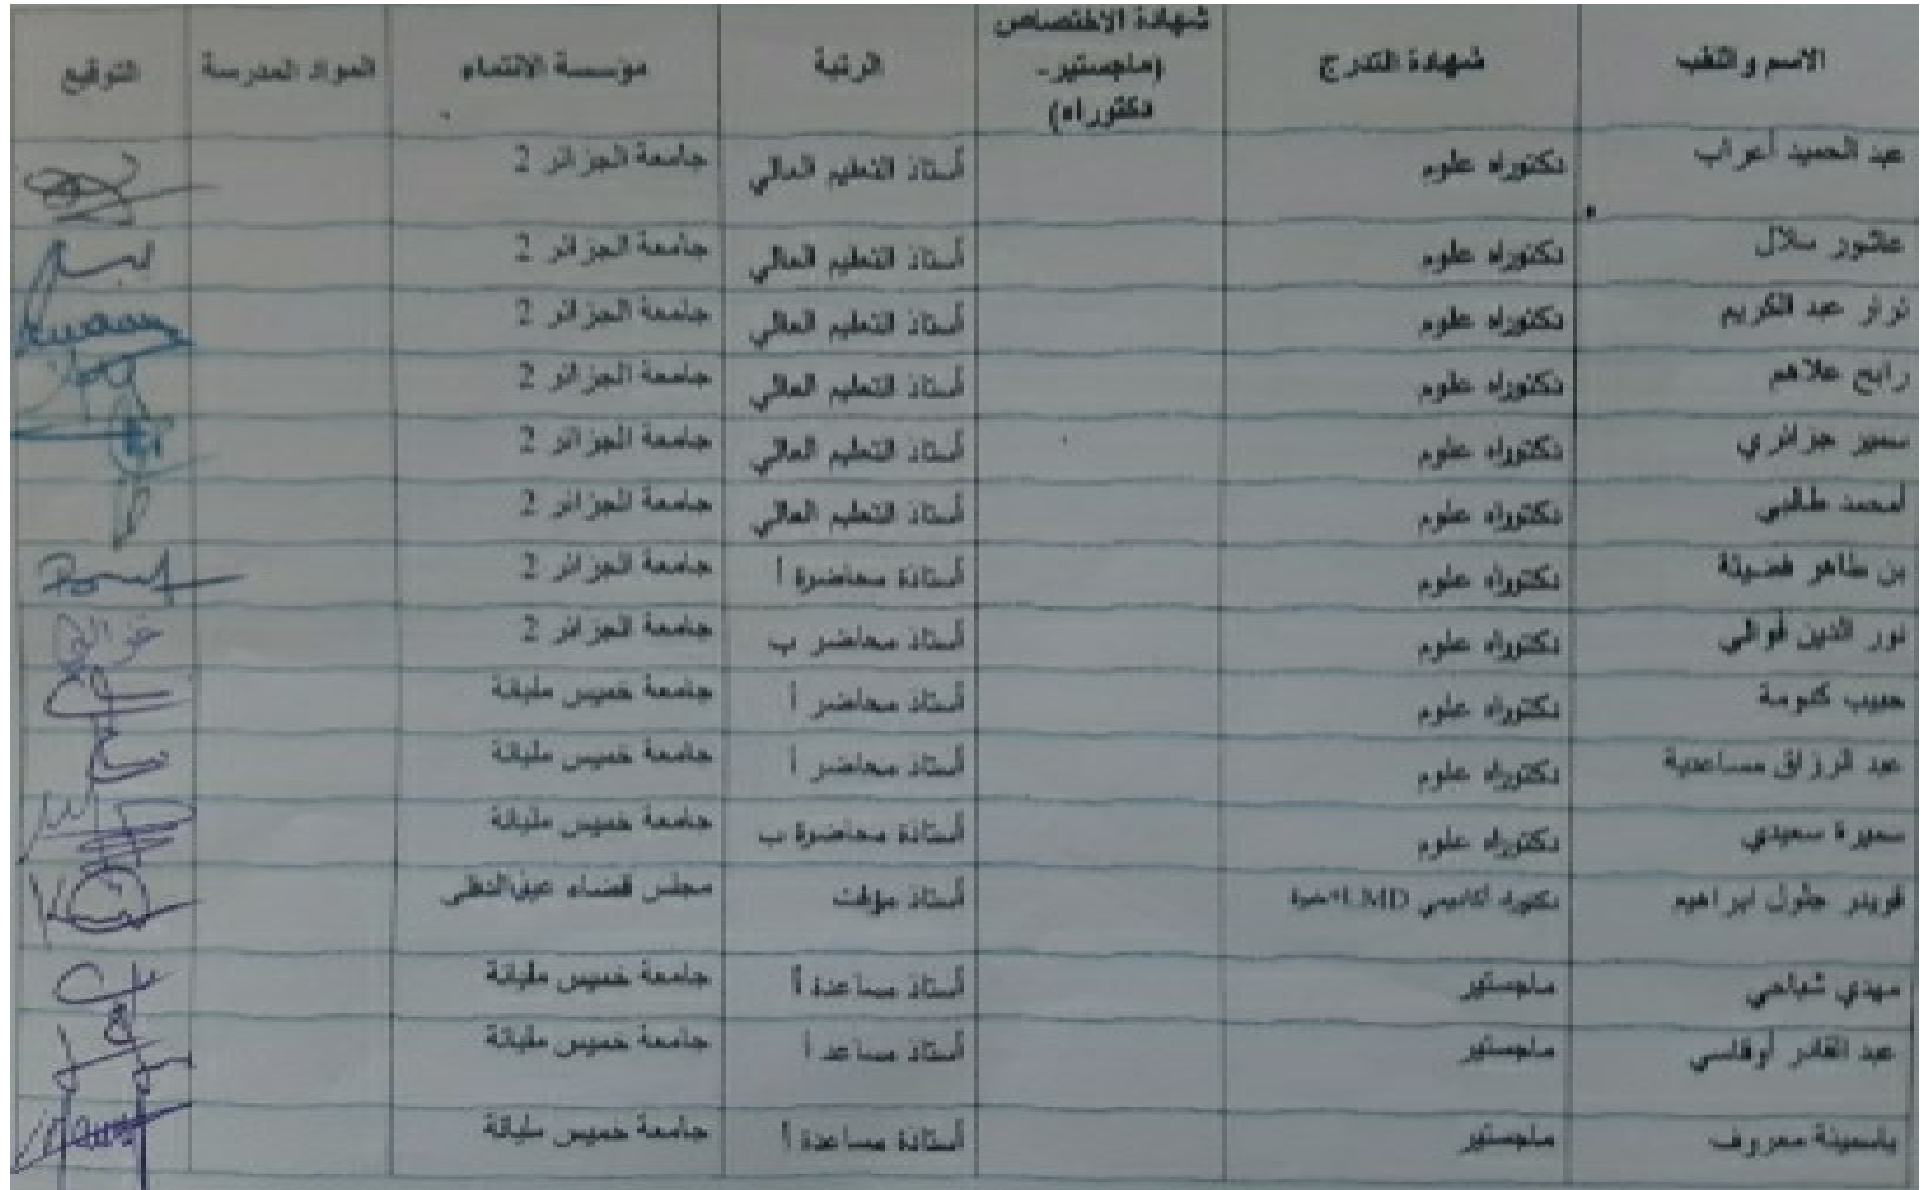 الاسم واللقب شهادة التدرج شهادة الاختصاص (ماجستير- دكتوراه) الرتبة مؤسسة الانتماء المواد المدرسة التوقيع
عبد الحميد أعراب دكتوراه علوم أستاذ التعليم العالي جامعة الجزائر 2
عاشور سلال دكتوراه علوم أستاذ التعليم العالي جامعة الجزائر 2
عبد الكريم دكتوراه علوم أستاذ التعليم العالي جامعة الجزائر 2
رابح علاهم دكتوراه علوم أستاذ التعليم العالي جامعة الجزائر 2
سمير جزائري دكتوراه علوم أستاذ التعليم العالي جامعة الجزائر 2
أمحمد طالبي دكتوراه علوم أستاذ التعليم العالي جامعة الجزائر 2
بن طاهر دكتوراه علوم أستاذة محاضرة أ جامعة الجزائر 2
نور الدين قوالي دكتوراه علوم أستاذ محاضر ب جامعة الجزائر 2
حبيب كنومة دكتوراه علوم أستاذ محاضر أ جامعة خميس مليانة
عبد الرزاق مساعدية دكتوراه علوم أستاذ محاضر أ جامعة خميس مليانة
سميرة سعيدي دكتوراه علوم أستاذة محاضرة ب جامعة خميس مليانة
قويدر جلول ابراهيم دكتوراه أكاديمي LMD أستاذ مؤقت مجلس قضاء عين الدفلى
مهدي شباحي ماجستير أستاذ مساعدة أ جامعة خميس مليانة
عبد القادر أوقاسي ماجستير أستاذ مساعد أ جامعة خميس مليانة
ياسمينة معروف ماجستير أستاذة مساعدة أ جامعة خميس مليانة